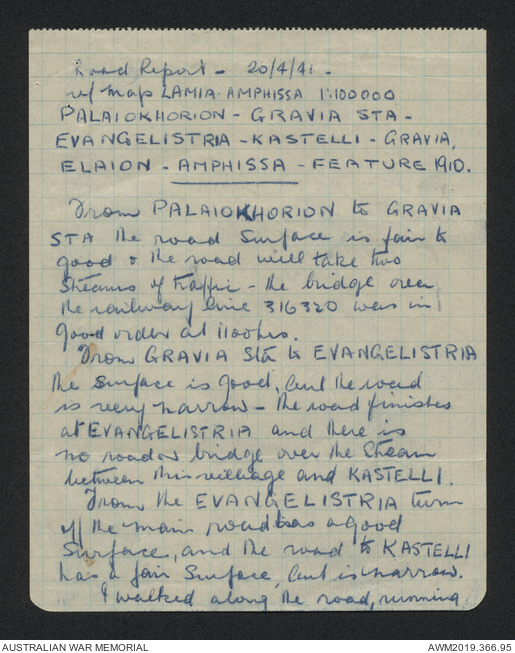 Road Report - 20/4/41.
ref map LAMIA-AMPHISSA 1:100000
PALAIOKHORION - GRAVIA STA -
EVANGELISTRIA - KASTELLI - GRAVIA,
ELAION - AMPHISSA - FEATURE 1910.
From PALAIOKHORION to GRAVIA
STA the road surface is fair to
good & the road will take two
Steams of traffic - the bridge over
the railway line 316320 was in
good order at 1100hrs.
From GRAVIA Sta to EVANGELISTRIA
the surface is good, but the road
is very narrow - the road finishes
at EVANGELISTRIA and there is
no road or bridge over the Steam
between this village and KASTELLI.
From the EVANGELISTRIA turn
off the main road has a good
Surface, and the road to KASTELLI
has a fair Surface, but is narrow.
I walked along the road, running
AUSTRALIAN WAR MEMORIAL
AWM2019.366.95